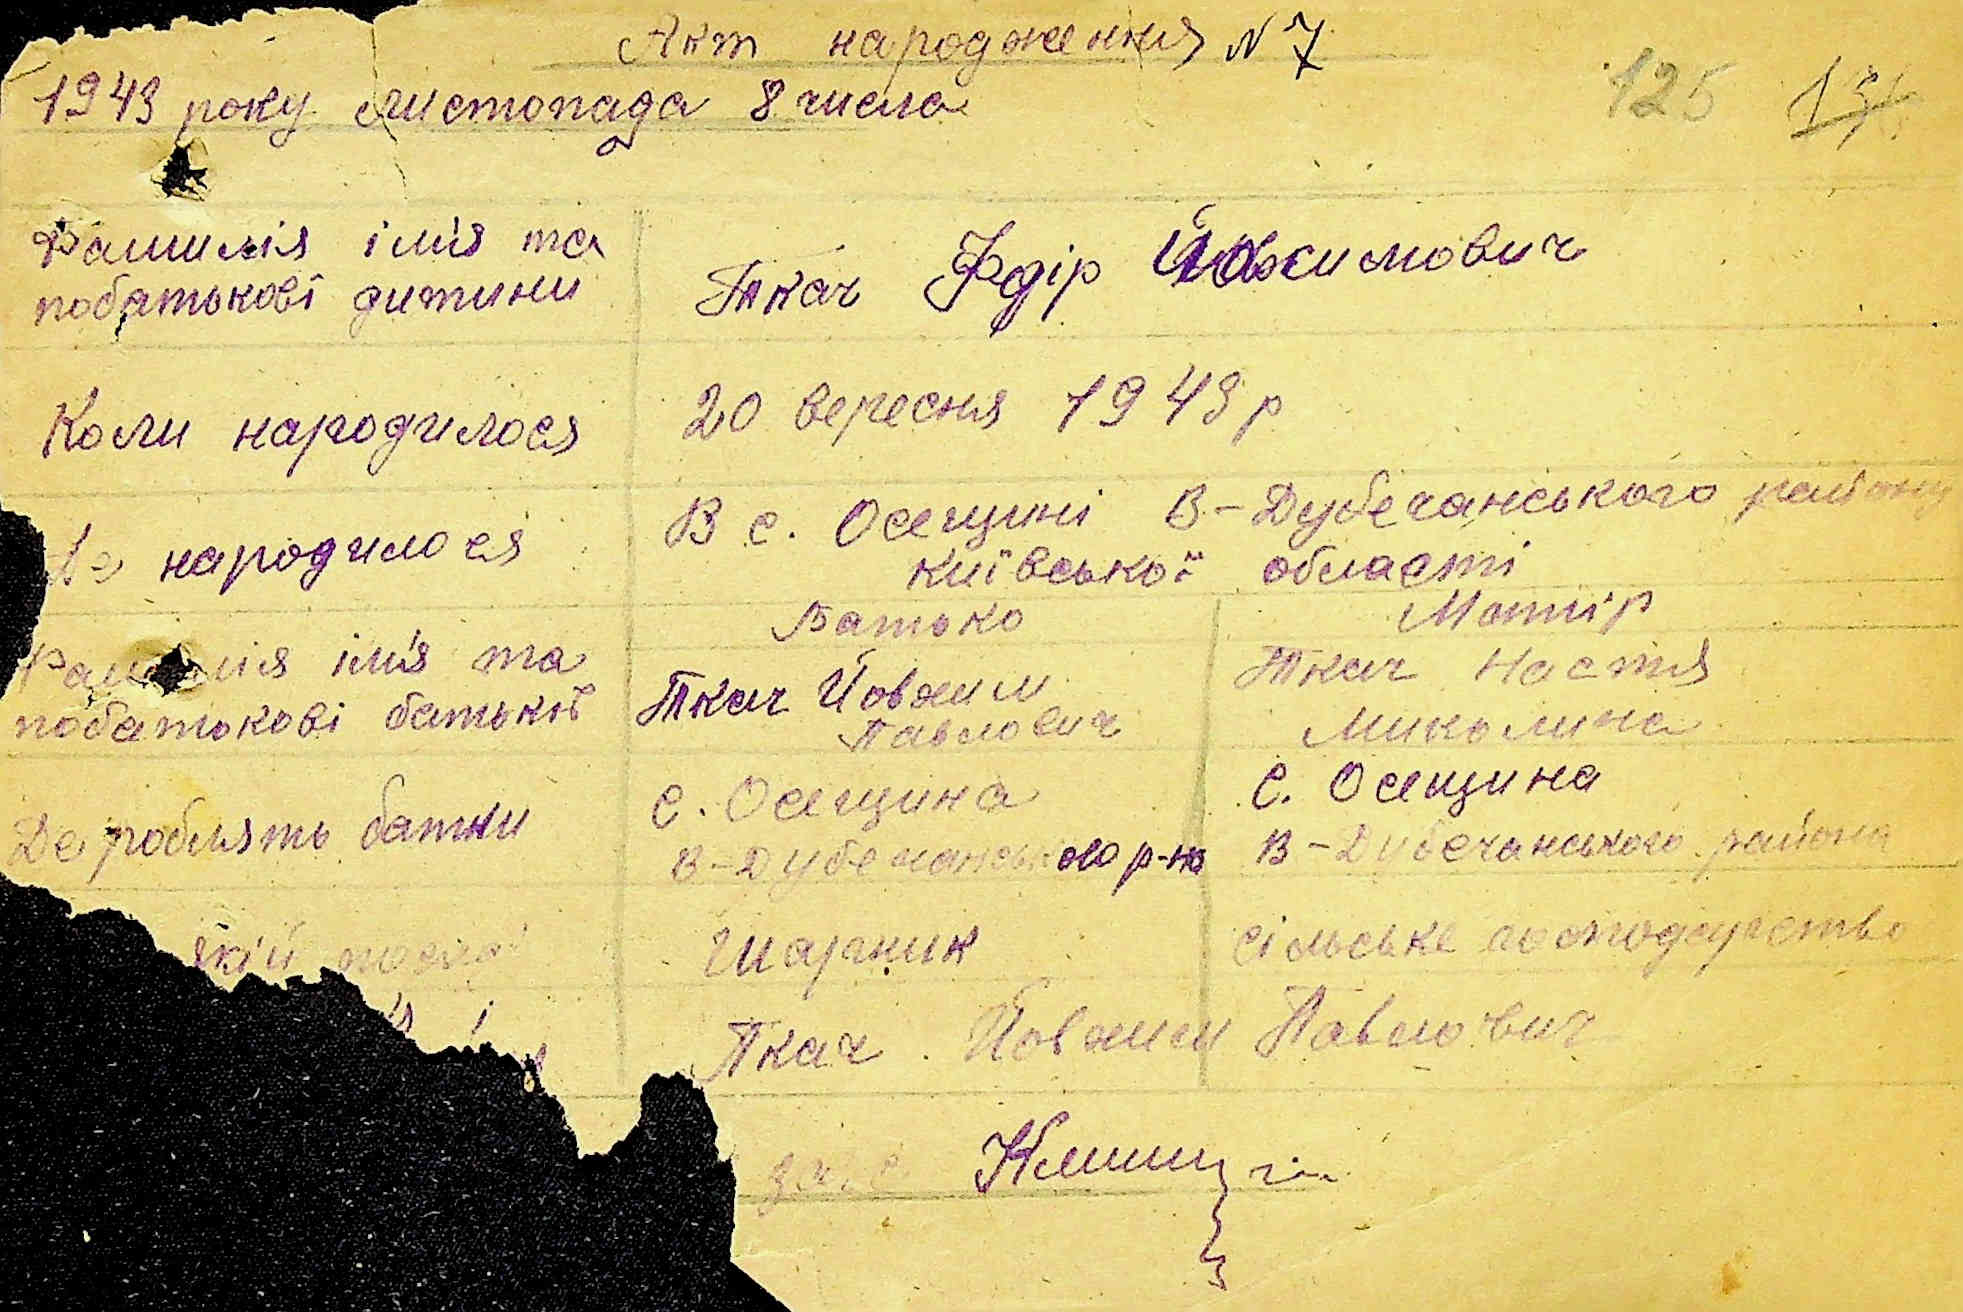 Акт народження N 7
1943 року листопада 8 числа
125
Фамилія ім'я та
побатькові дитини
Ткач Фдір Йовхимович
Коли народилося
20 вересня 1943 р
народилося
В с. Осещині В-Дубечанського району
Київської области
Батько
Мотір
Фамилія ім'я та
побатькові батьків
Ткач Йовхим
Павлович
Ткач Настя
Миколина
Де роблять батки
с. Осещина
В-Дубечанського р-на
с. Осещина
В-Дубечанського района
якій посаді
шарник
сільське господарство
Ткач Йовхим Павлович